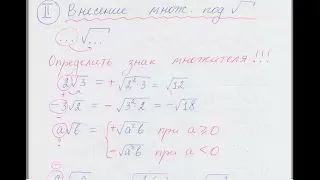 II Внесение множ. под √
... √...
Определить знак множителя !!!
2√3 = +√2²·3 = √12
-3√2 = -√3²·2 = -√18
a√b = +√a²b при a ⩾ 0
-√a²b при a < 0